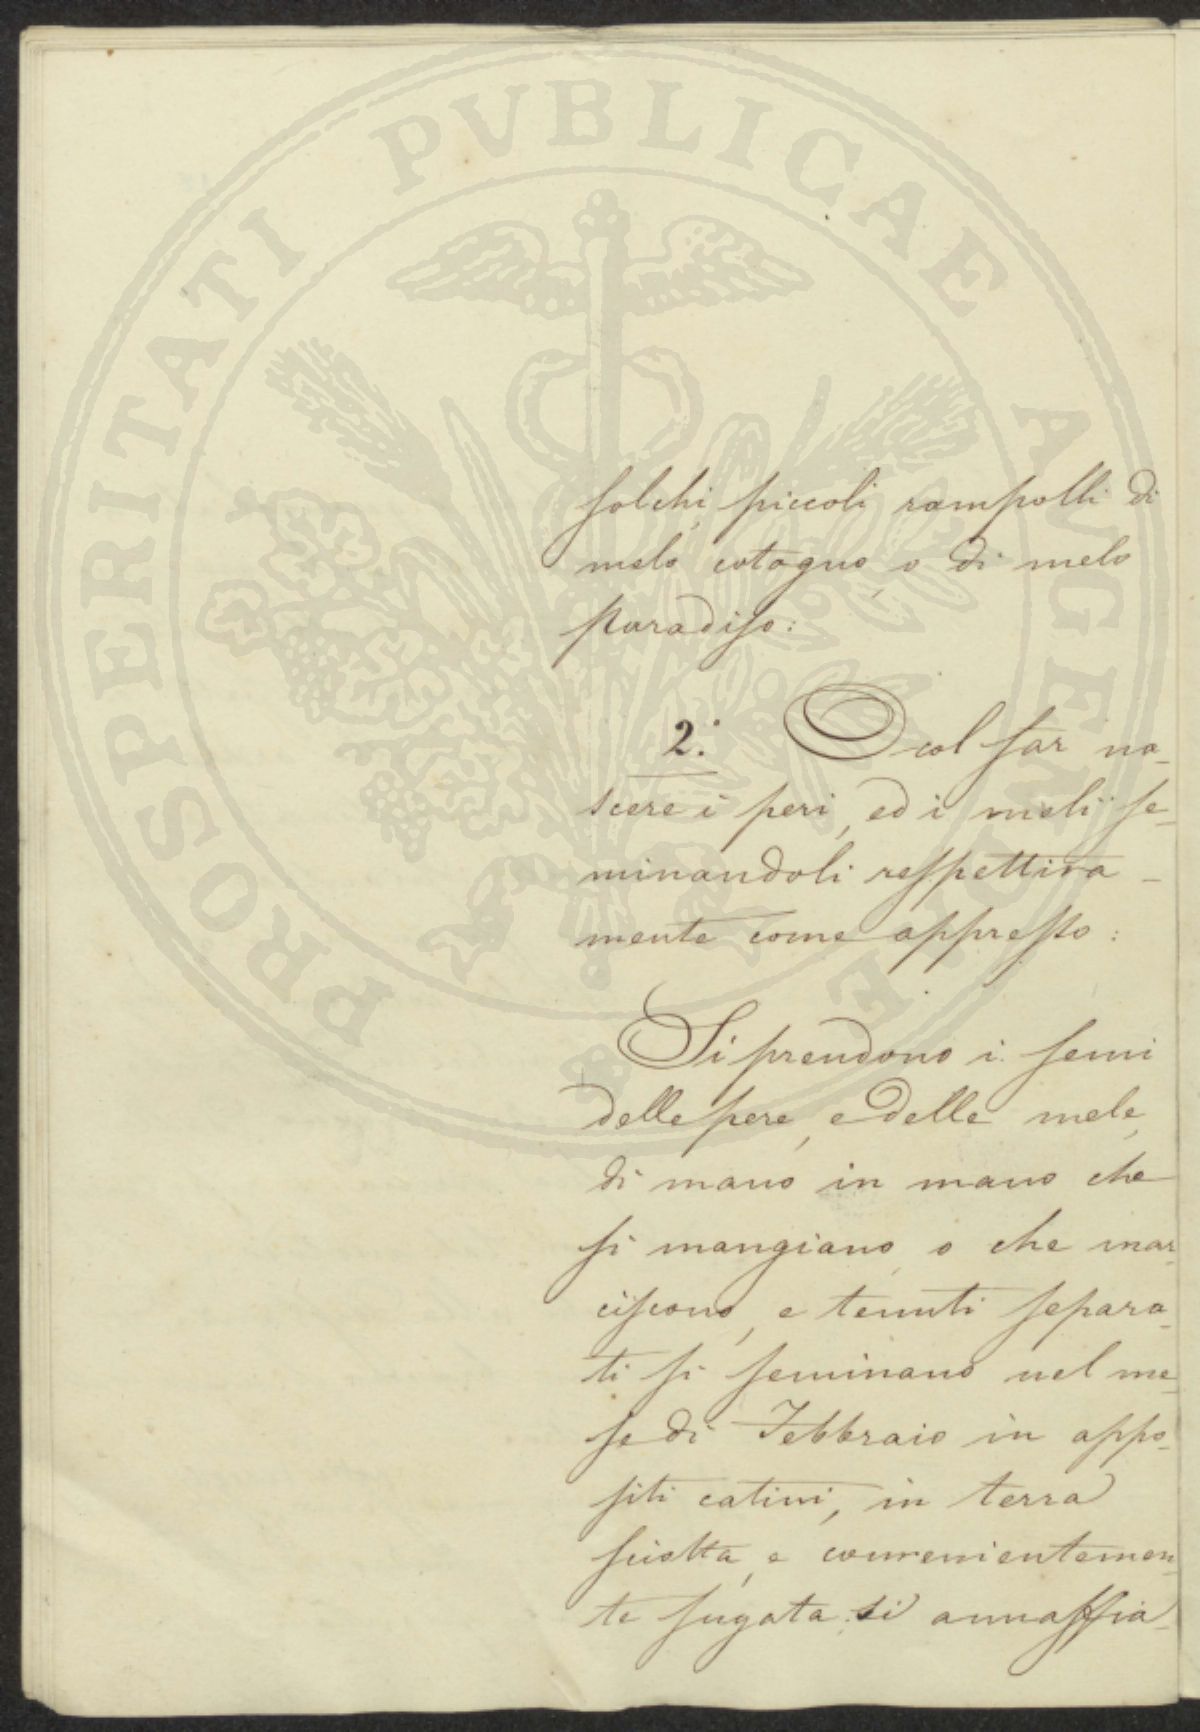 PROSPERITATI PVBLICAE AVGENDAE
solchi, piccoli rampolli di
melo cotogno, o di melo
paradiso:
2.° O col far na-
scere i peri, ed i meli se-
minandoli respettiva-
mente come appresso:
Si prendono i semi
delle pere, e delle mele,
di mano in mano che
si mangiano, o che mar-
ciscono, e tenuti separa-
ti si seminano nel me-
se di Febbraio in appo-
siti catini, in terra
sciolta, e convenientemen-
te sugata: si annaffia-